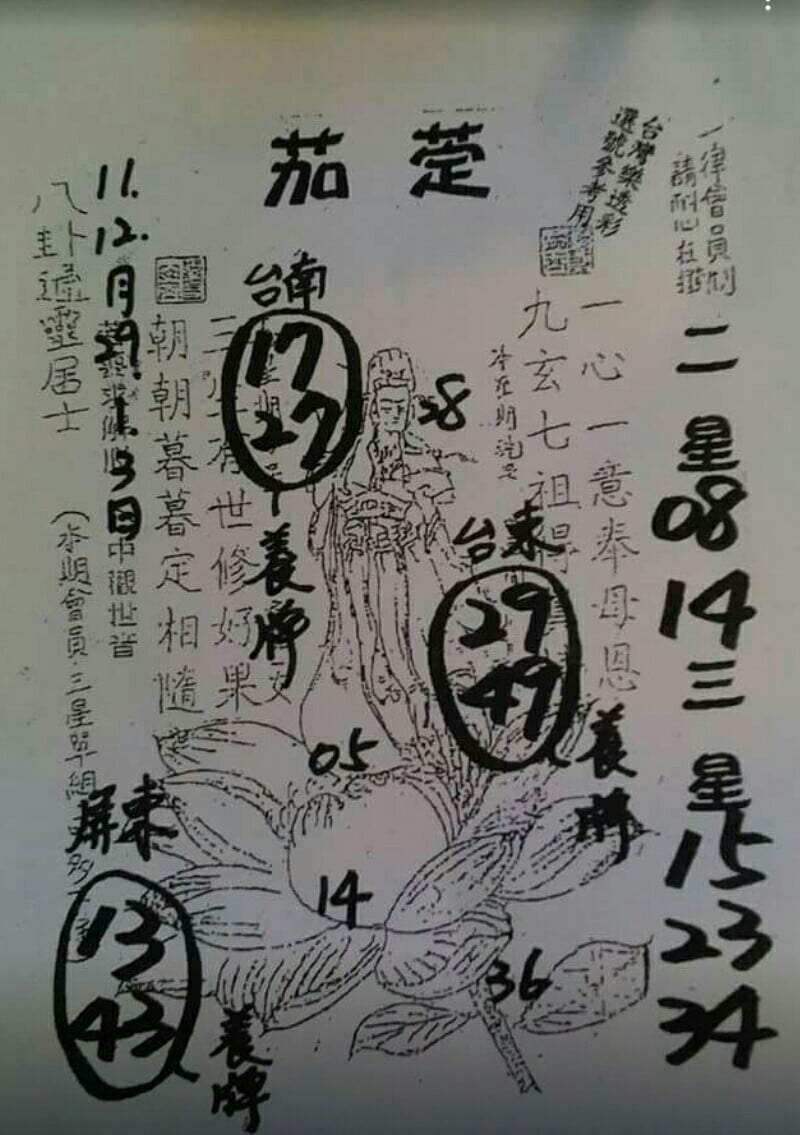 茄萣
一律會員制
請耐心在
台灣樂透彩
選號參考用
二星
08
14
三星
15
23
34
一心一意奉母恩
九玄七祖得
台南
17
27
養牌
28
台東
29
49
養牌
05
14
36
屏東
13
43
養牌
世修好果
朝朝暮暮定相隨
11.
12.
月
29.
1.
3
日
中觀世音
八卦
靈居士
(本期會員三星單組